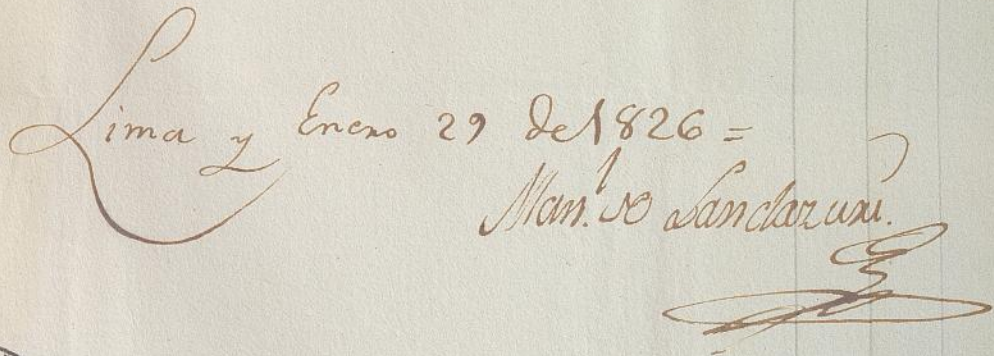 Lima y Enero 29 de 1826 =
Man.l de Landazuri.